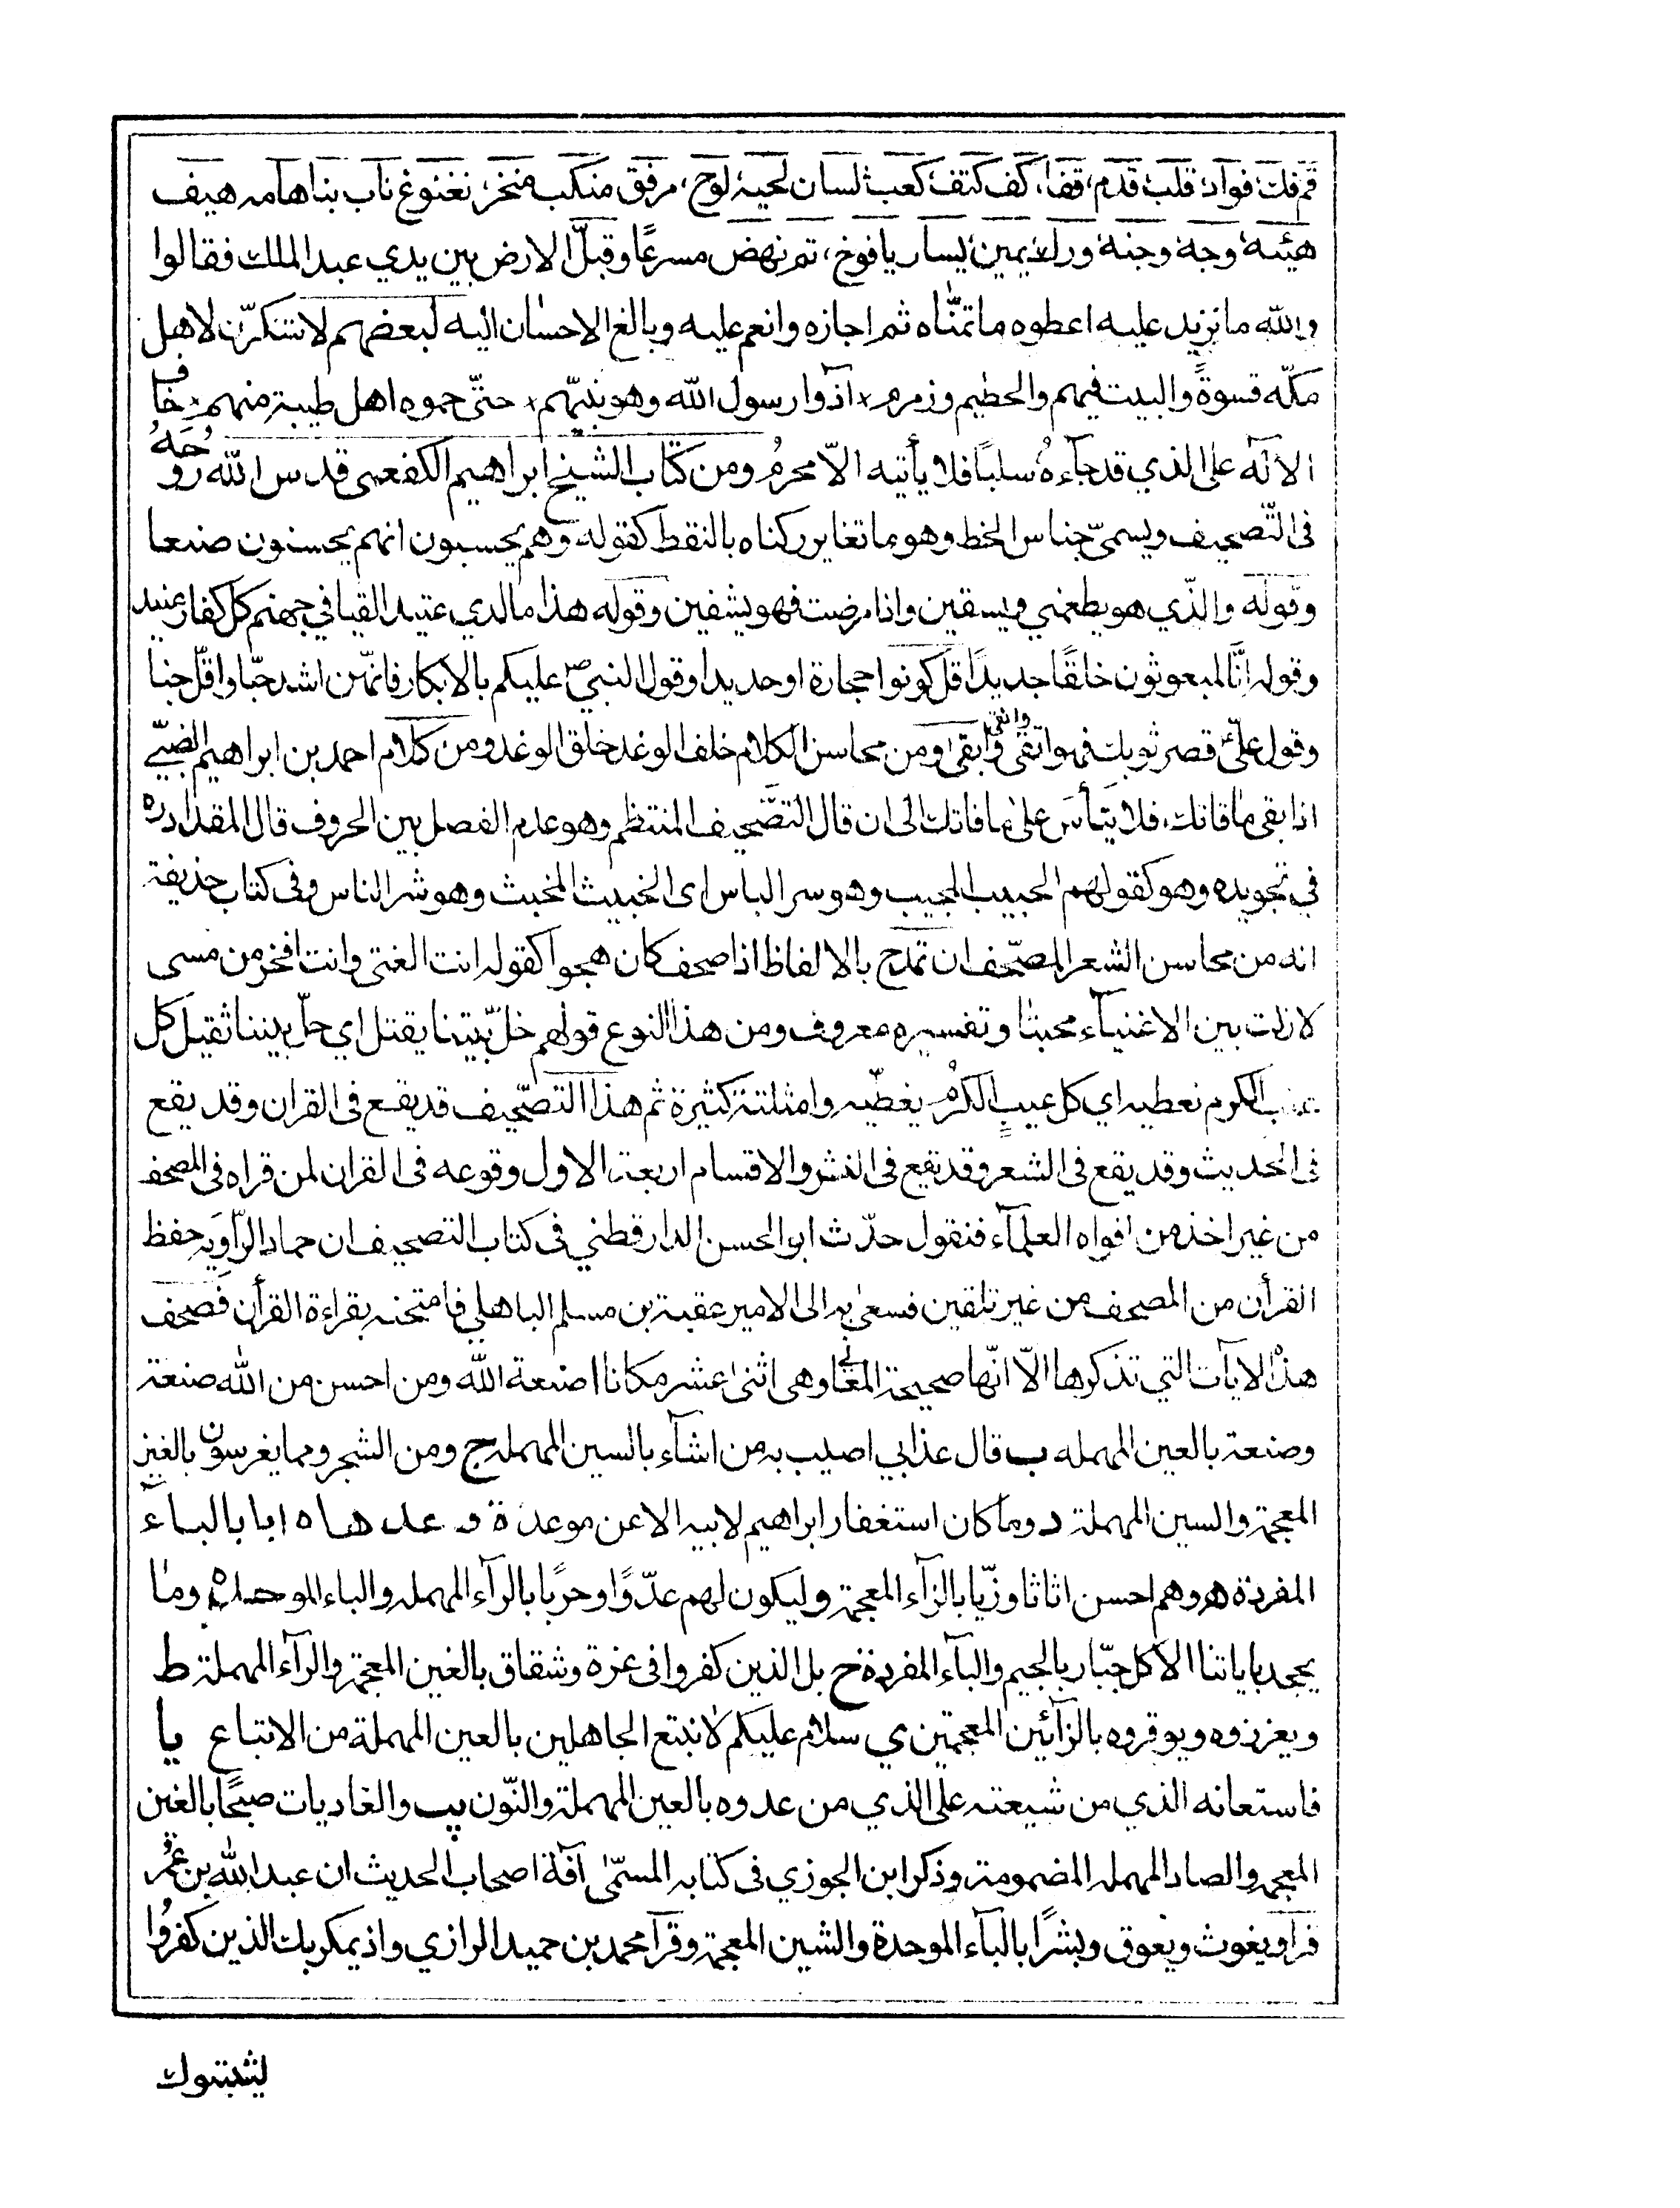 قم فلت فواد قلب قدم، قفا، كف كتف كعب لسان لحيه لوح، مرفق منكب منخر، نغنوغ ناب بنا هامه هيف
هيئه وجه وجنه ورك يمين يسار يافوخ، ثم نهض مسرعًا وقبّل الارض بين يدي عبد الملك فقالوا
والله ما نزيد عليه اعطوه ما تمنّاه ثم اجازه وانعم عليه وبالغ الاحسان اليه لبعضهم لا تنكرّن لاهل
مكّه قسوةً والبيت فيهم والحطيم وزمزم × آذوا رسول الله وهو نبيّهم × حتّى حموه اهل طيبة منهم × خاف
الاله على الذي قد جآءهُ سلبًا فلا يأتيه الاّ محرمُ ومن كتاب الشيخ ابراهيم الكفعمى قدس الله روحَهُ
فى التّصحيف ويسمىّ جناس الخط وهو ما تغاير ركناه بالنقط كقوله وهم يحسبون انهم يحسنون صنعا
وقوله والذّي هو يطعمني ويسقين واذا مرضت فهو يشفين وقوله هذا ما لدي عتيد القيا في جهنم كل كفار عنيد
وقوله انّا لمبعوثون خلقًا جديدًا قل كونوا حجارة او حديدا وقول النبيّ ص عليكم بالابكار فانهّن اشد حبّا واقلّ خبا
وقول علىّ قصر ثوبك فهو اتقى وانقى وابقى ومن محاسن الكلام خلف الوغد خلق الوغد ومن كلام احمد بن ابراهيم الضبّي
اذا بقى ما قاتك، فلا تيأسَ على ما فاتك الى ان قال التصّحيف المنتظم وهو عدم الفصل بين الحروف قال المقداد ره
في تجويده وهو كقولهم الحبيب المجيب وهو سر الباس اى الخبيث المخبث وهو شر الناس وفى كتاب حذيفة
انه من محاسن الشعر المصّحف ان تمدح بالالفاظ اذا صحف كان هجوا كقوله انت الغنى وانت افخر من مسى
لا زلت بين الاغنيآء محبتا وتفسيره معروف ومن هذا النوع قولهم خلّ بيتنا يقتل اي حلّ بيننا ثقيل كل
الكوم نعطيه اي كل عيبٍ الكرمُ يغطيّه وامثلتة كثيرة ثم هذا التصّحيف قد يقع فى القران وقد يقع
فى الحديث وقد يقع فى الشعر وقد يقع فى النثر والاقسام اربعة الاول وقوعه فى القران لمن قراه فى المصحف
من غير اخذ من افواه العلمآء فنقول حدّث ابو الحسن الدارقطني فى كتاب التصحيف ان حماد الرّاويَه حفظ
القرأن من المصحف من غير تلقين فسعى به الى الامير عقبة بن مسلم الباهلي فامتحنه بقراءة القرأن فَصحف
هذه الايآت التي تذكرها الاّ انّها صحيحة المعانى وهى اثنى عشر مكانا ا صنعة الله ومن احسن من الله صنعة
وصنعة بالعين المهمله ب قال عذابي اصيب به من اشآء بالسين المهمله ج ومن الشجر ومما يغرسون بالغين
المعجمة والسين المهملة د وما كان استغفار ابراهيم لابيه الا عن موعدة وعدها ه ابا بالباء
المفردة هـ وهم احسن اثاثا وزيّا بالزآء المعجمة و ليكون لهم عدّوًا وحربًا بالرآء المهمله والباء الموحدة ز وما
يجحد باياتنا الا كل جبّار بالجيم والبآء المفردة ح بل الذين كفروا فى غرة وشقاق بالغين المعجمة والرآء المهملة ط
ويعززوه ويوقروه بالزآئين المعجمتين ي سلام عليكم لا نبتع الجاهلين بالعين المهملة من الاتباع يا
فاستعانه الذي من شيعته على الذي من عدوه بالعين المهملة والنّون يب والغاديات صبحًا بالغين
المعجمه والصاد المهمله المضمومة وذكر ابن الجوزي فى كتابه المسمّى آفة اصحاب الحديث ان عبد الله بن عمر
قرا ويغوث ويعوق وبشرًا بالبآء الموحدة والشين المعجمة وقرآ محمد بن حميد الرازي واذ يمكر بك الذين كفروا
ليثبتوك